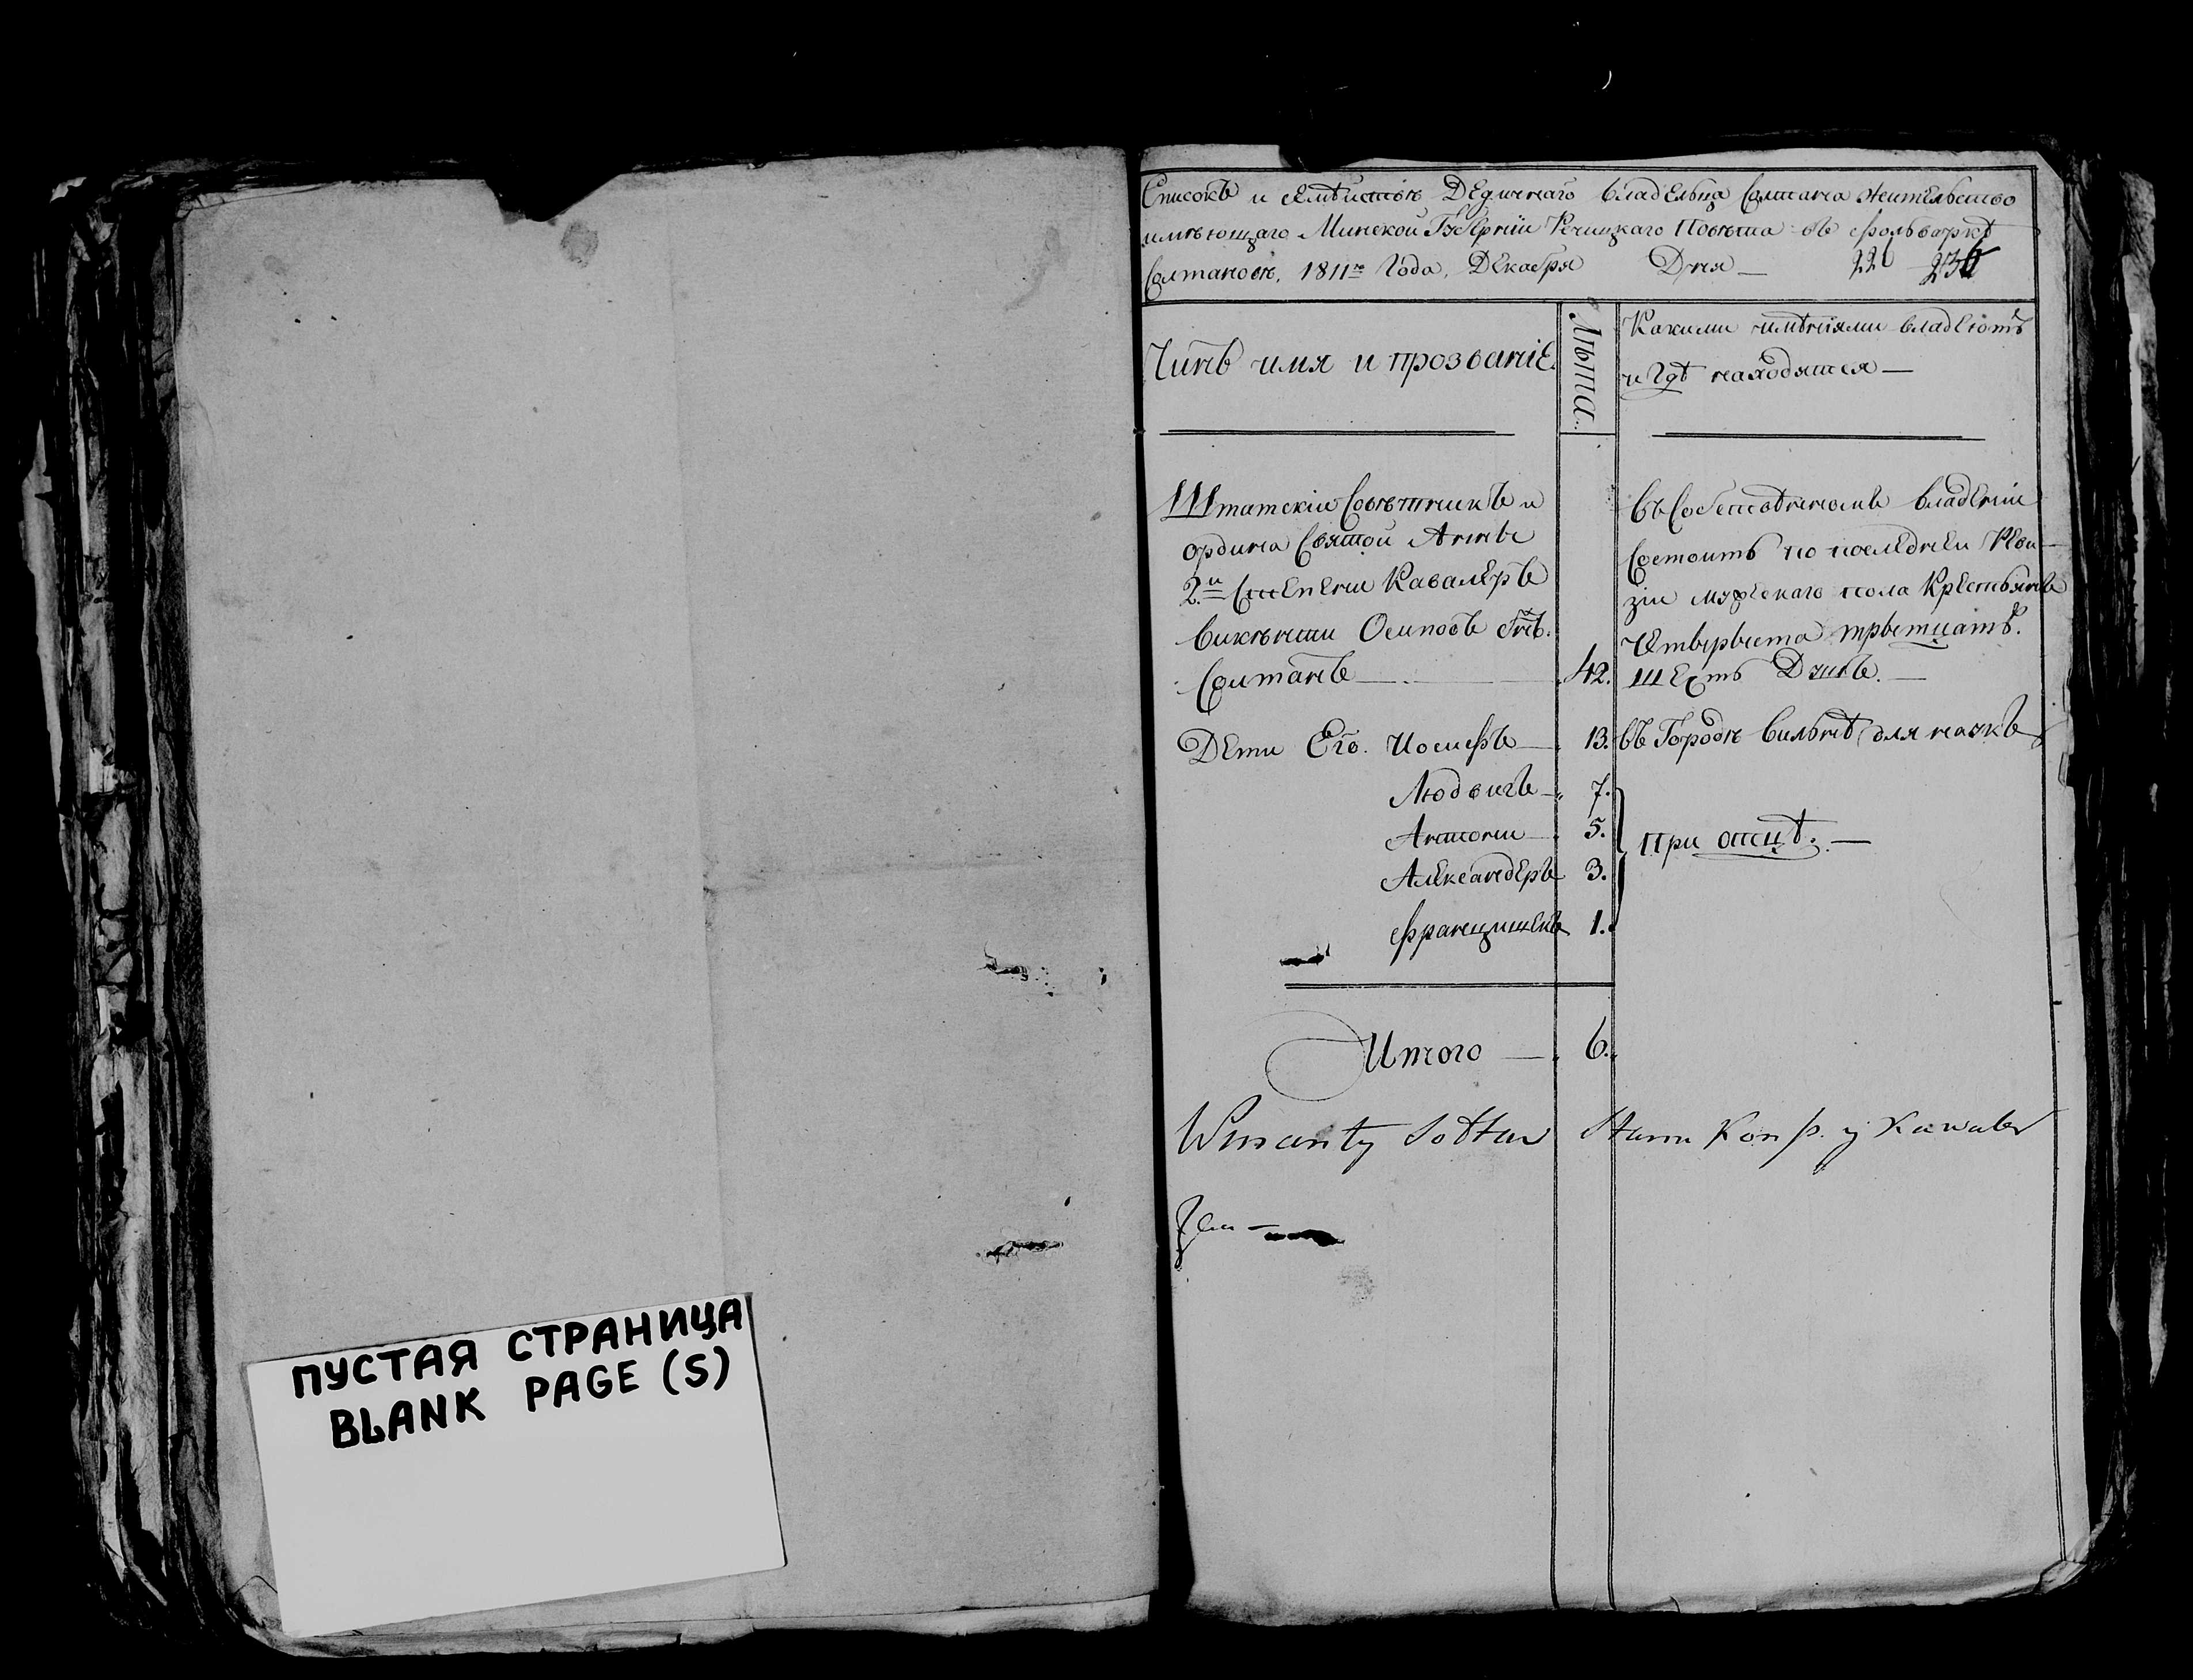 ПУСТАЯ СТРАНИЦА
BLANK PAGE (S)
Списокъ и семѣйствѣ Дедичнаго владѣльца Солтана жительство
имѣющаго Минской Губерніи Речицкаго Повѣта въ фольваркѣ
Солтановѣ, 1811го Года, Декабря Дня — 226 236
Чинъ имя и прозваніе.
Лѣта.
Какими имѣніями владеютъ
и гдѣ находятся —
Штатскій Совѣтникъ и
ордина Святой Анны
2й Степени Кавалеръ
Викѣнти Осиповъ Снъ.
Солтанъ — 42.
въ Собственномъ владеніи
Состоитъ по последней Реви-
зіи мужескаго пола Крестьянъ
Четырыста трытцать.
шесть Душъ. —
Дети Его. Иосифъ — 13. въ Городѣ Вильнѣ для наукъ
Людвигъ — 7.
Антони — 5.
при отцѣ. —
Александеръ 3.
Францишекъ 1.
Итого — 6.
Wincenty Sołtan Stanu Kons. y Kawaler